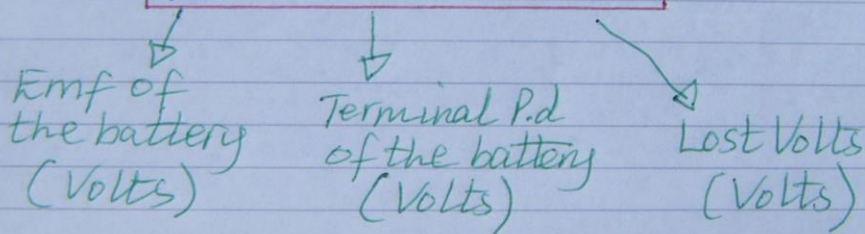 Emf of
the battery
(Volts)
Terminal P.d
of the battery
(Volts)
Lost Volts
(Volts)